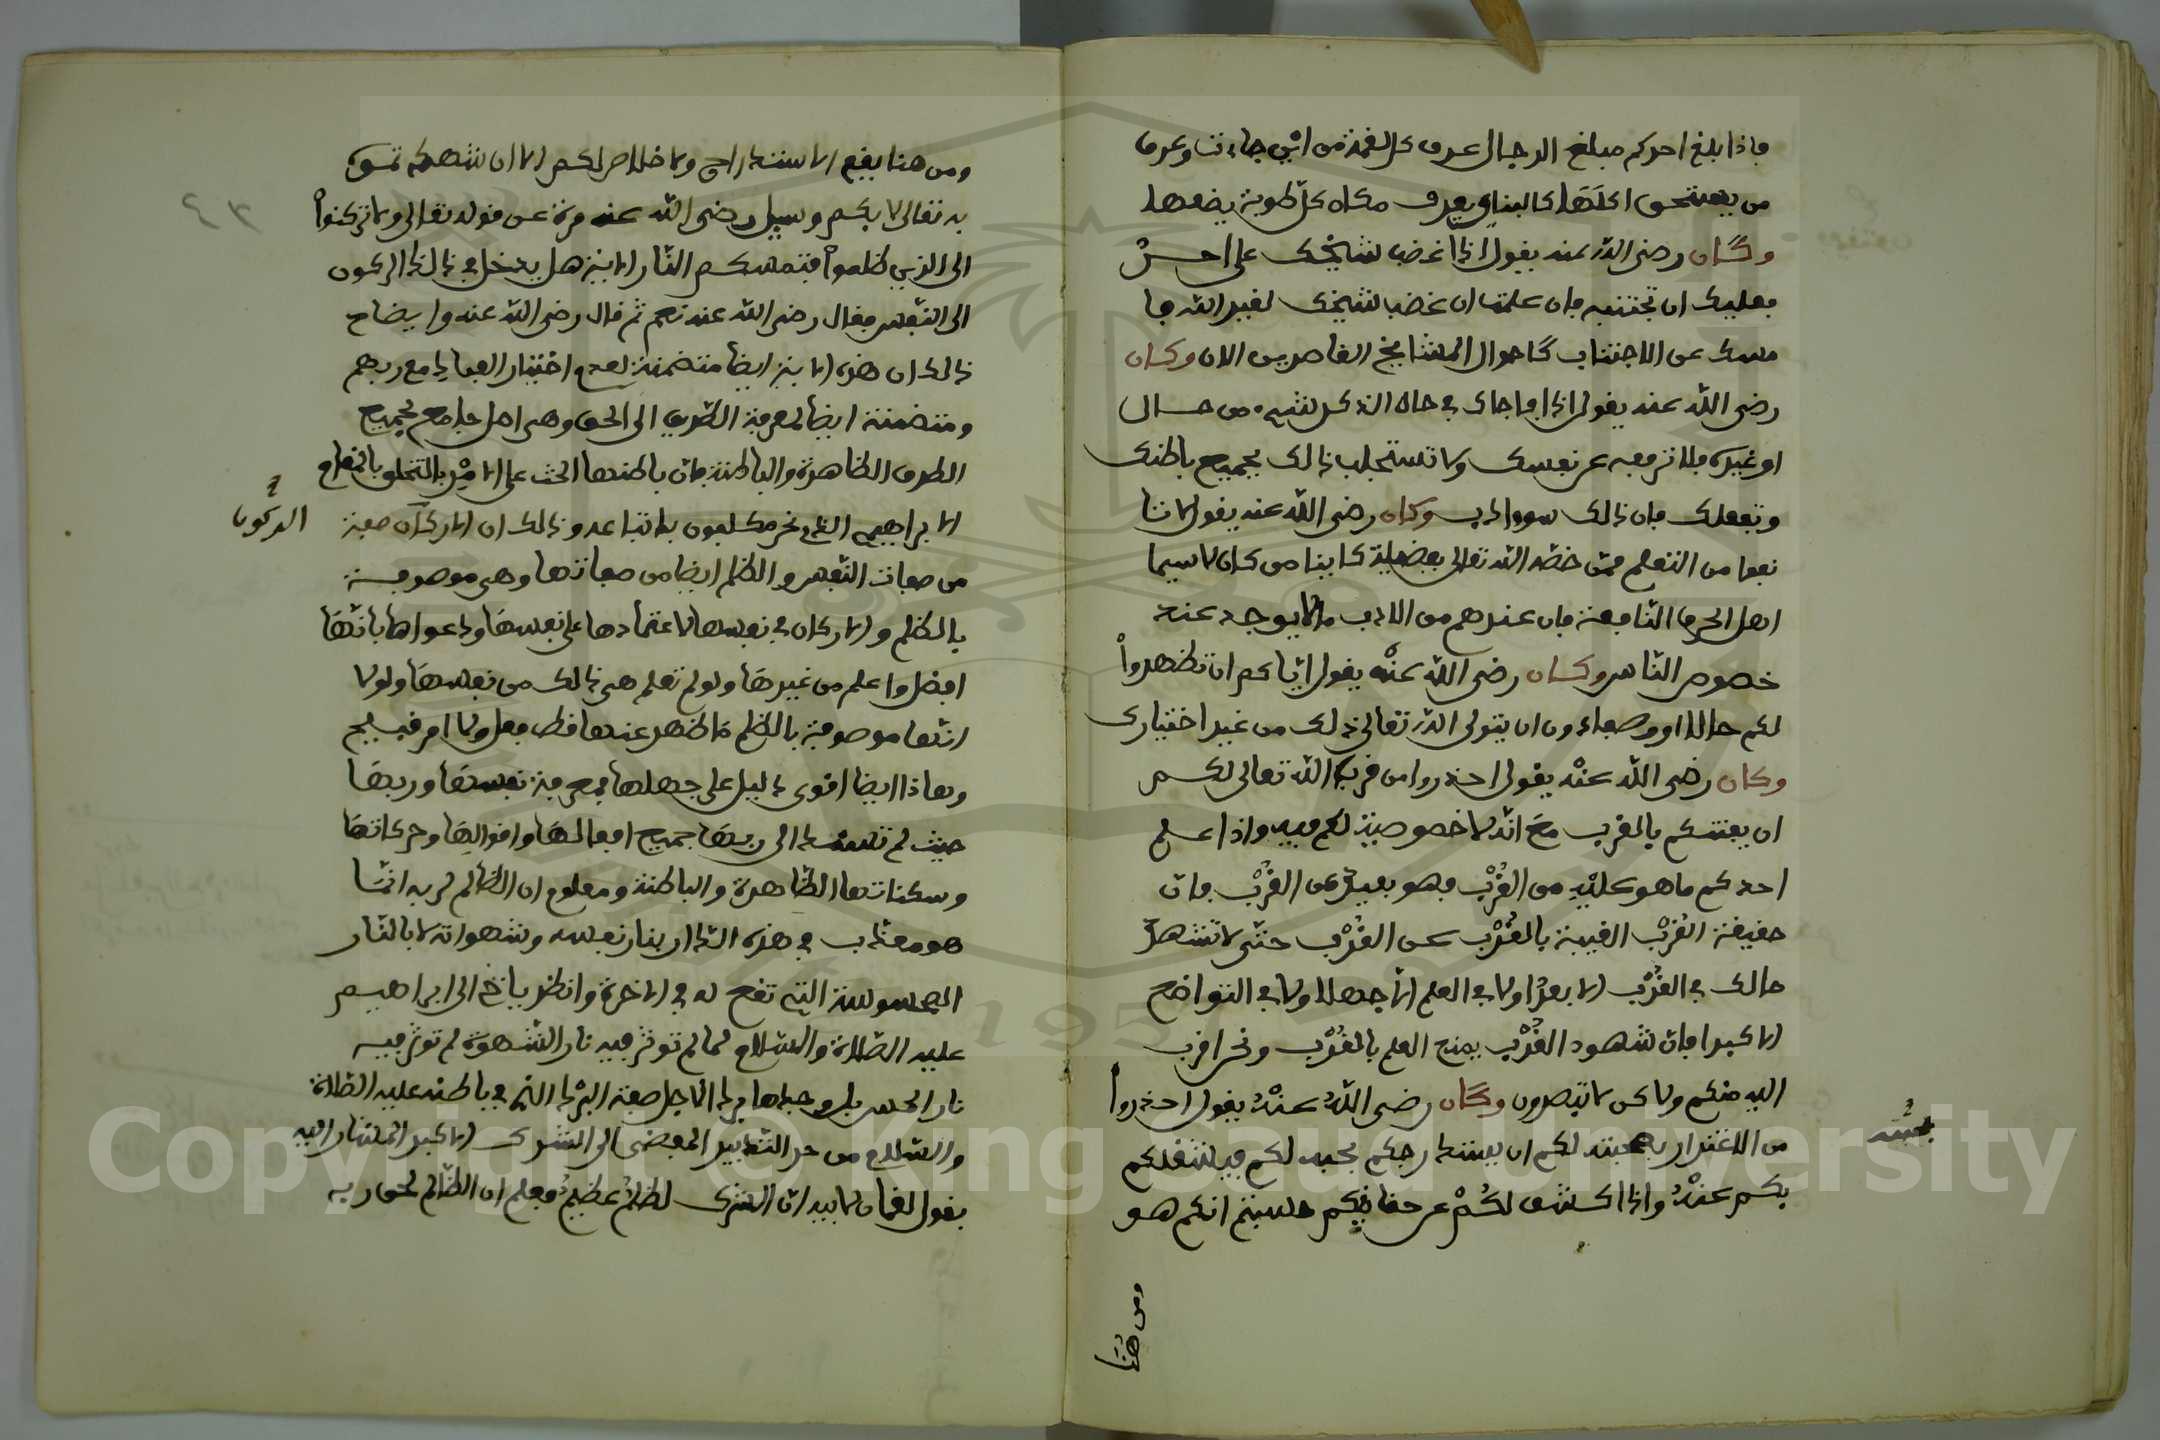 فاذا بلغ احدكم مبلغ الرجال عرف كل لقمة من اين جاءت وعرف
من يستحق اكلها كالبناي يعرف مكان كل طوبة يضعها
وكان رضى الله عنه يقول اذا غضب شيخك على احد
فعليك ان تجتنبه فان علمت ان غضب شيخك لغير الله فا
مسك عن الاجتناب كاحوال المشايخ القاصرين الان وكان
رضى الله عنه يقول اذا فاجاك في حال الذكر شيء من حال
او غيره فلا ترفعه عن نفسك ولا تستجلب ذالك بجميع باطنك
وتفعلك فان ذالك سوء ادب وكان رضى الله عنه يقول لا تا
نفوا من التعلم ممن خصه الله تعالى بفضيلة كاينا من كان لا سيما
اهل الحرف النافعة فان عندهم من الادب ما لا يوجد عند
خصوص الناس وكان رضى الله عنه يقول اياكم ان تظهروا
لكم حالا او وصفا دون ان يتولى الله تعالى ذلك من غير اختياركم
وكان رضى الله عنه يقول احذروا من قرب الله تعالى لكم
ان يفتنكم بالقرب مع انه لا خصوصية لكم فيه واذا علم
احدكم ما هو عليه من القرب فهو بعيد عن القرب فان
حقيقة القرب الغيبة بالقرب عن القرب حتى لا تشهد
حالك في القرب الا بعدا ولا في العلم الا جهلا ولا في التواضع
الا كبرا فان شهود القرب يمنع العلم بالقرب ونحن اقرب
اليه منكم ولاكن لا تبصرون وكان رضى الله عنه يقول احذروا
من الاغترار بمحبته لكم ان يستدرجكم بحبه لكم فيشغلكم
بكم عنه واذا كشف لكم عن حقايقكم حسبتم انكم هو
بمحبته
ومن هنا
ومن هنا يقع الاستدراج ولا خلاص لكم الا ان تشهدكم
به تعالى لا بكم وسيل رضى الله عنه مرة عن قوله تعالى ولا تركنوا
الى الذين ظلموا فتمسكم النار الاية هل يدخل في ذالك الركون
الى النفس فقال رضى الله عنه نعم ثم قال رضى الله عنه وايضاح
ذالك ان هذه الاية ايضا متضمنة لعدم اختيار العباد مع ربهم
ومتضمنة ايضا لمعرفة الطريق الى الحق وهى اصل جامع لجميع
الطرق الظاهرة والباطنة فان باطنها الحث على الامر بالتخلق بالمقام
الابراهيمي الذي نحن مكلفون باتباعه وذالك ان الاركان صفة
الركون
من صفات النفس والظلم ايضا من صفاتها وهى موصوفة
بالظلم والاركان في نفسها لاعتمادها على نفسها ودعواها بانها
افضل واعلم من غيرها ولو لم تعلم هى ذالك من نفسها ولولا
انها موصوفة بالظلم ما ظهر عندها قط فعل ولا امر قبيح
وهاذا ايضا اقوى دليل على جهلها بمعرفة نفسها وربها
حيث لم تسند الى ربها جميع افعالها واقوالها وحركاتها
وسكناتها الظاهرة والباطنة ومعلوم ان الظالم لربه انما
هو معذب في هذه الدار بنار نفسه وشهواته لا بالنار
المحسوسة التي تقع له في الاخرة وانظر ياخي الى ابراهيم
عليه الصلاة والسلام لما لم توثر فيه نار الشهوة لم توثر فيه
نار الحس بل وجدها بردا لاجل صفة البرد الذي في باطنه عليه الصلاة
والسلام من حر التدبير المفضى الى الشرك الاكبر المشار اليه
بقول لقمان لابنه ان الشرك لظلم عظيم فعلم ان الظالم لحق ربه
٤٣
Copyright © King Saud University
1957